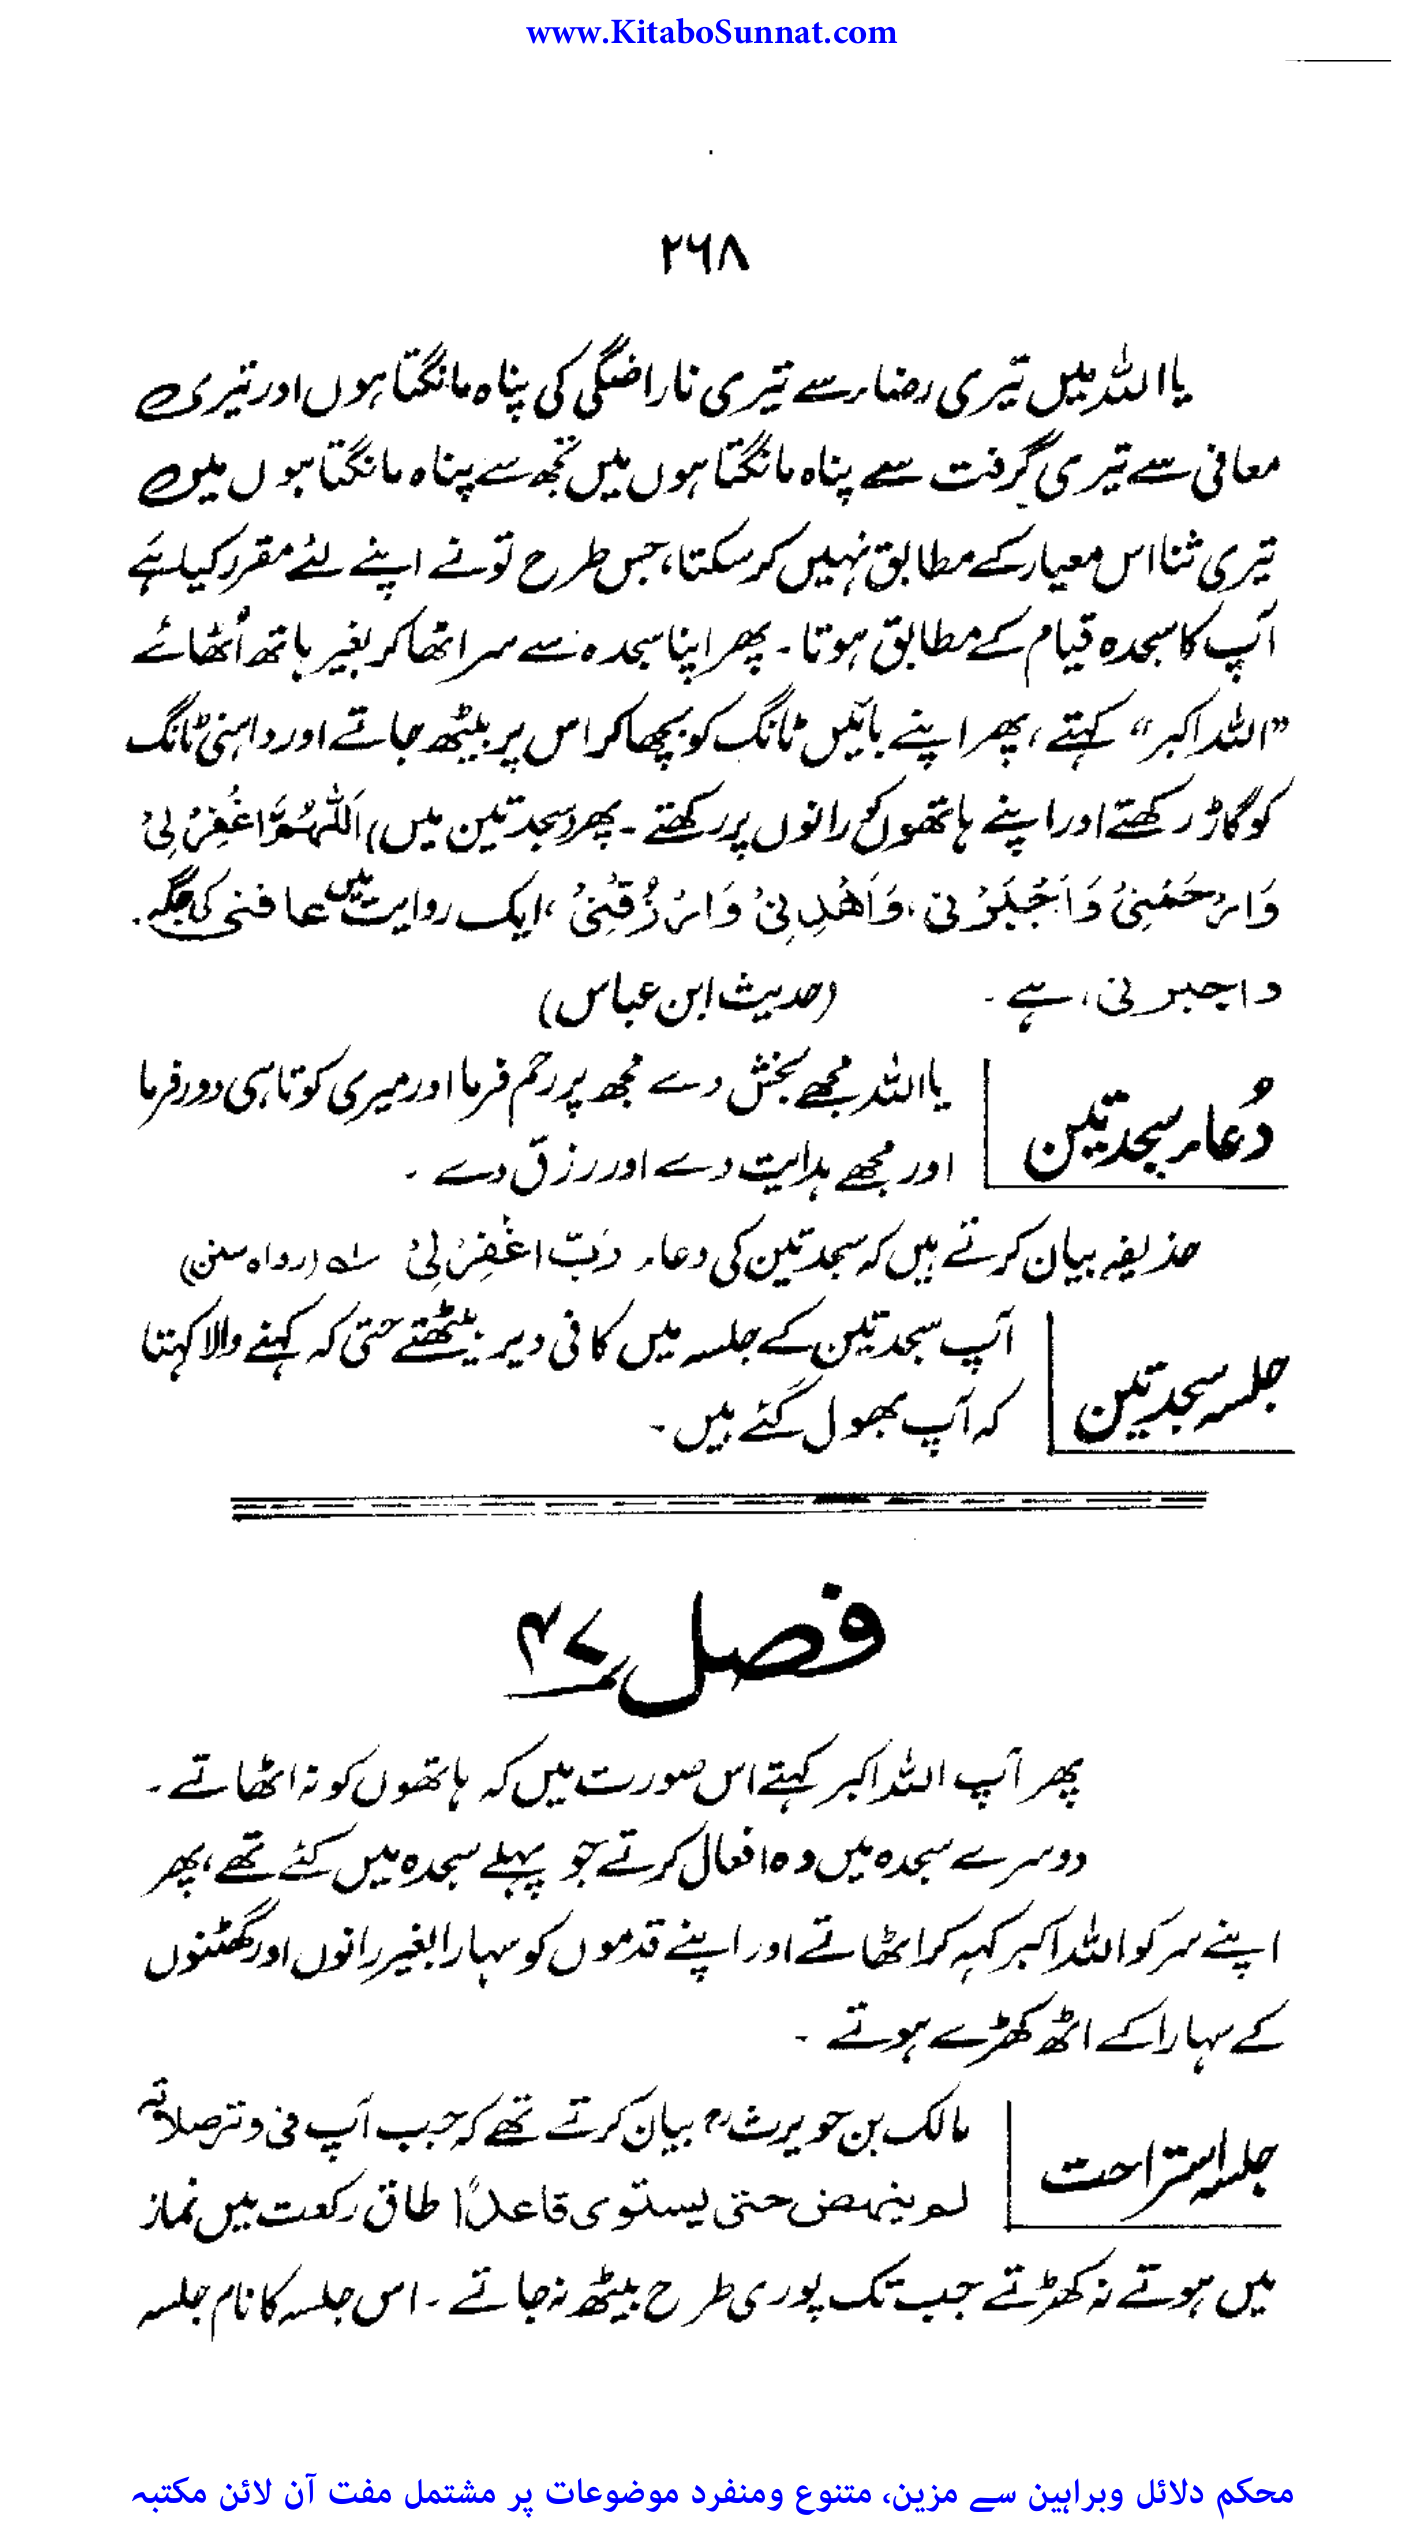 www.KitaboSunnat.com
۲۶۸
یا اللہ میں تیری رضاء سے تیری ناراضگی کی پناہ مانگتا ہوں اور تیری
معافی سے تیری گرفت سے پناہ مانگتا ہوں میں تجھ سے پناہ مانگتا ہوں میں
تیری ثنا اس معیار کے مطابق نہیں کر سکتا، جس طرح تو نے اپنے لئے مقرر کیا ہے
آپ کا سجدہ قیام کے مطابق ہوتا ۔ پھر اپنا سجدہ سے سر اٹھا کر بغیر ہاتھ اُٹھائے
”اللہ اکبر“ کہتے، پھر اپنے بائیں ٹانگ کو بچھا کر اس پر بیٹھ جاتے اور داہنی ٹانگ
کو گاڑ رکھتے اور اپنے ہاتھوں کو رانوں پر رکھتے ۔ پھر (سجدتین میں) اَللّٰهُمَّ اغْفِرْ لِیْ
وَارْحَمْنِیْ وَاجْبَرْنی، وَاَهْدِنِیْ وَارْزُقْنِیْ، ایک روایت میں عافنی کی جگہ
واجبرنی، ہے ۔ (حدیث ابن عباس)
دُعاء سجدتین
یا اللہ مجھے بخش دے مجھ پر رحم فرما اور میری کوتاہی دور فرما
اور مجھے ہدایت دے اور رزق دے ۔
حذیفہ بیان کرتے ہیں کہ سجدتین کی دعاء رَبّ اغْفِرْ لِیْ (رواہ سنن)
جلسہ سجدتین
آپ سجدتین کے جلسہ میں کافی دیر بیٹھتے حتی کہ کہنے والا کہتا
کہ آپ بھول گئے ہیں ۔
فصل ۴۷
پھر آپ اللہ اکبر کہتے اس صورت میں کہ ہاتھوں کو نہ اٹھاتے ۔
دوسرے سجدہ میں وہ افعال کرتے جو پہلے سجدہ میں کئے تھے، پھر
اپنے سر کو اللہ اکبر کہہ کر اٹھاتے اور اپنے قدموں کو سہارا بغیر رانوں اور گھٹنوں
کے سہارا کے اٹھ کھڑے ہوتے ۔
جلسہ استراحت
مالک بن حویرث بیان کرتے تھے کہ جب آپ فی وتر صلاتہ
لم ینہض حتی یستوی قاعداً طاق رکعت میں نماز
میں ہوتے نہ کھڑتے جب تک پوری طرح بیٹھ نہ جاتے ۔ اس جلسہ کا نام جلسہ
محکم دلائل وبراہین سے مزین، متنوع ومنفرد موضوعات پر مشتمل مفت آن لائن مکتبہ